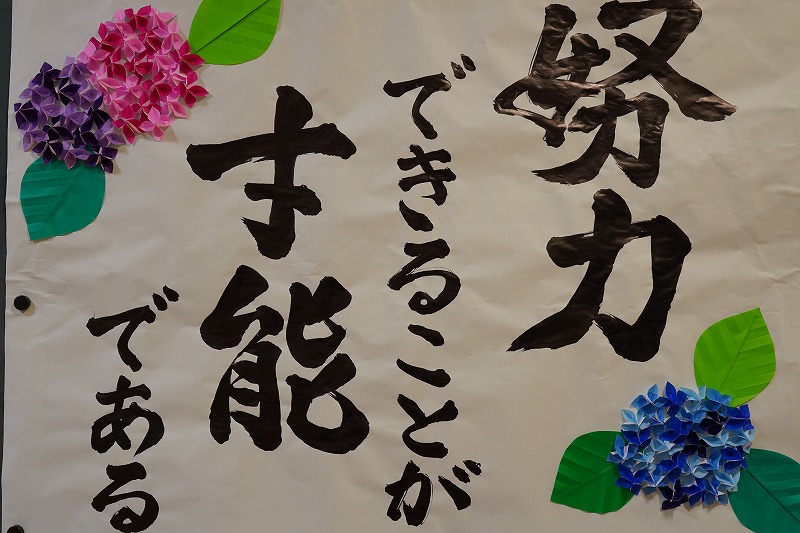 努力
できることが
才能
である